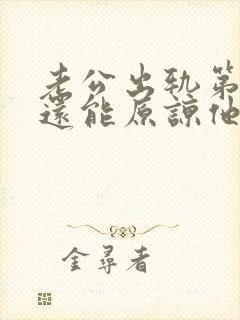 老公出軌第
還能原諒他
金尋者